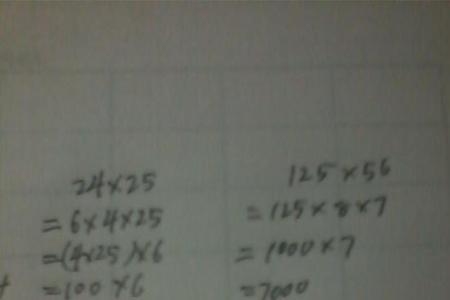 24×25
=6×4×25
=(4×25)×6
=100×6
125×56
=125×8×7
=1000×7
=7000